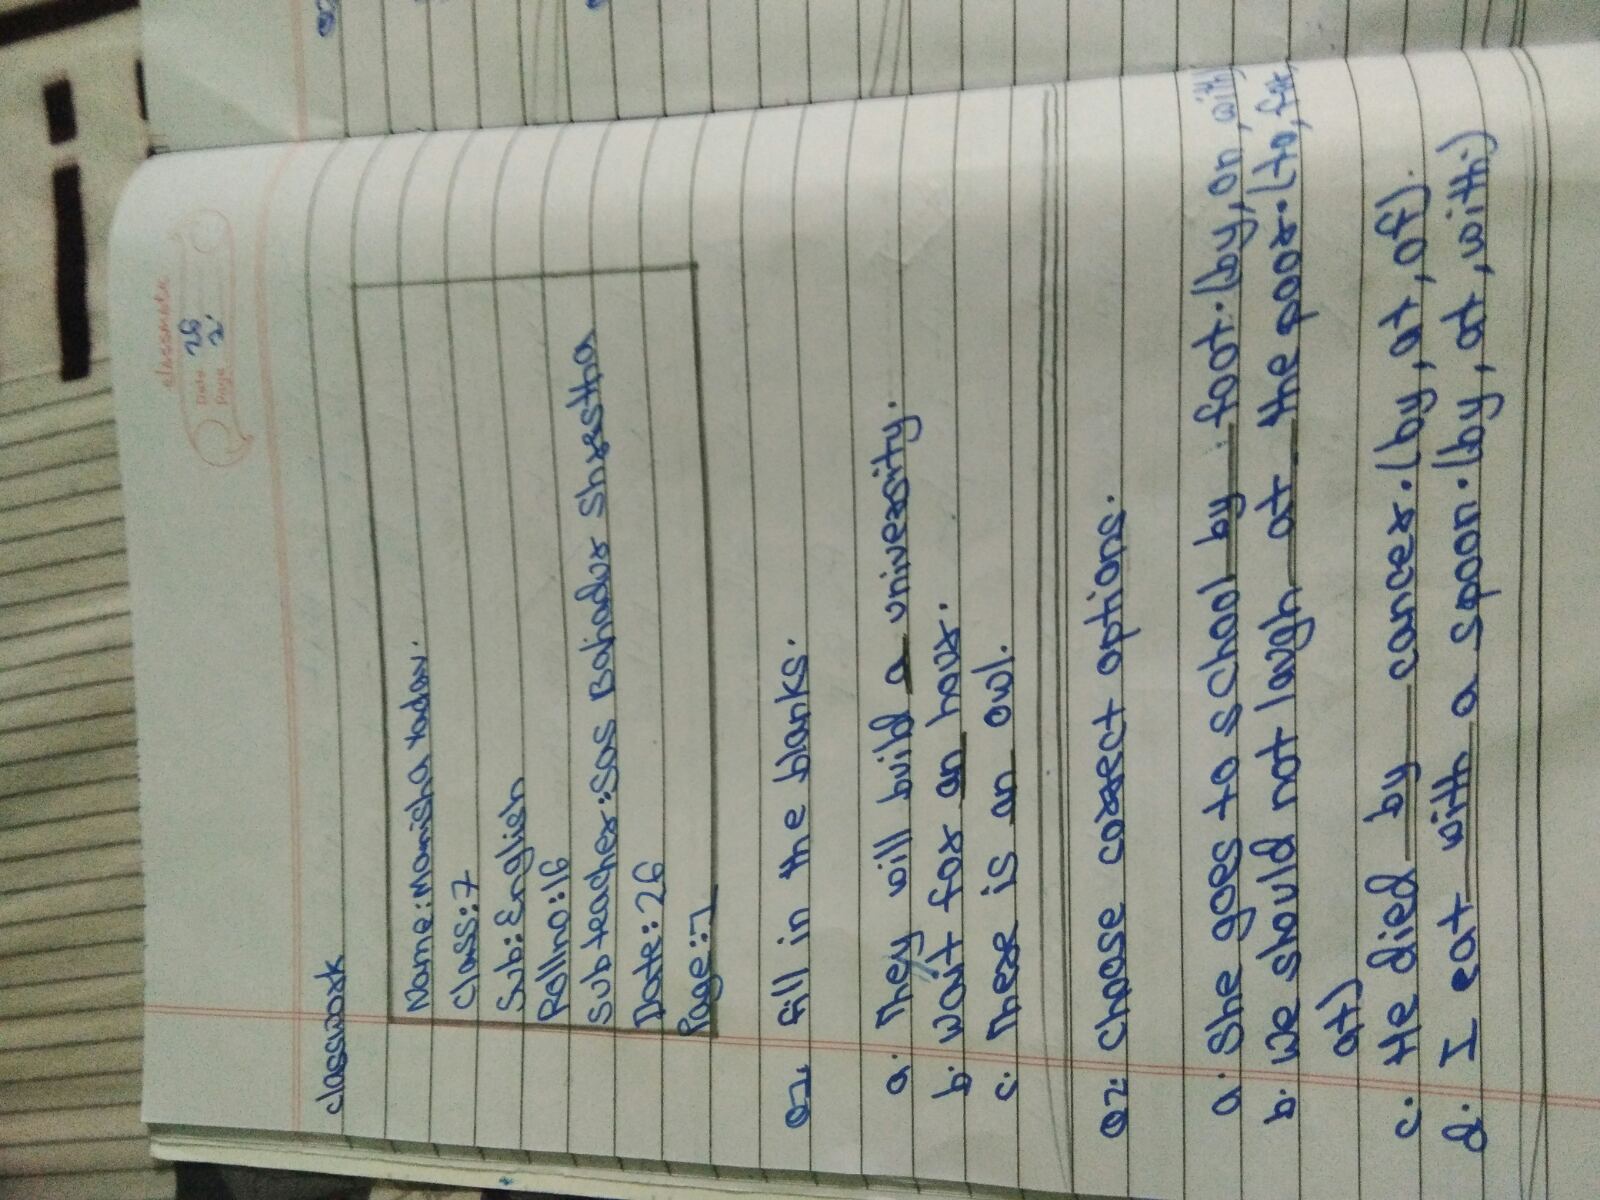 classmate
Date 26
Page 2
classwork
Name: Manisha Yadav.
Class: 7
Sub: English
Rollno: 16
Sub teacher: Sas Bahadur Shrestha
Date: 26
Page: 1
Q1. fill in the blanks.
a. They will build a university.
b. wait for an hour.
c. There is an owl.
Q2. Choose correct options.
a. She goes to school by foot. (by, on, with
b. we should not laugh at the poor. (to, for,
at)
c. He died by cancer. (by, at, of).
d. I eat with a spoon. (by, at, with.)